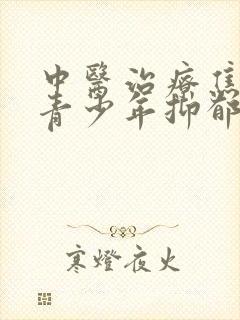 中醫治療焦
青少年抑郁
寒燈夜火